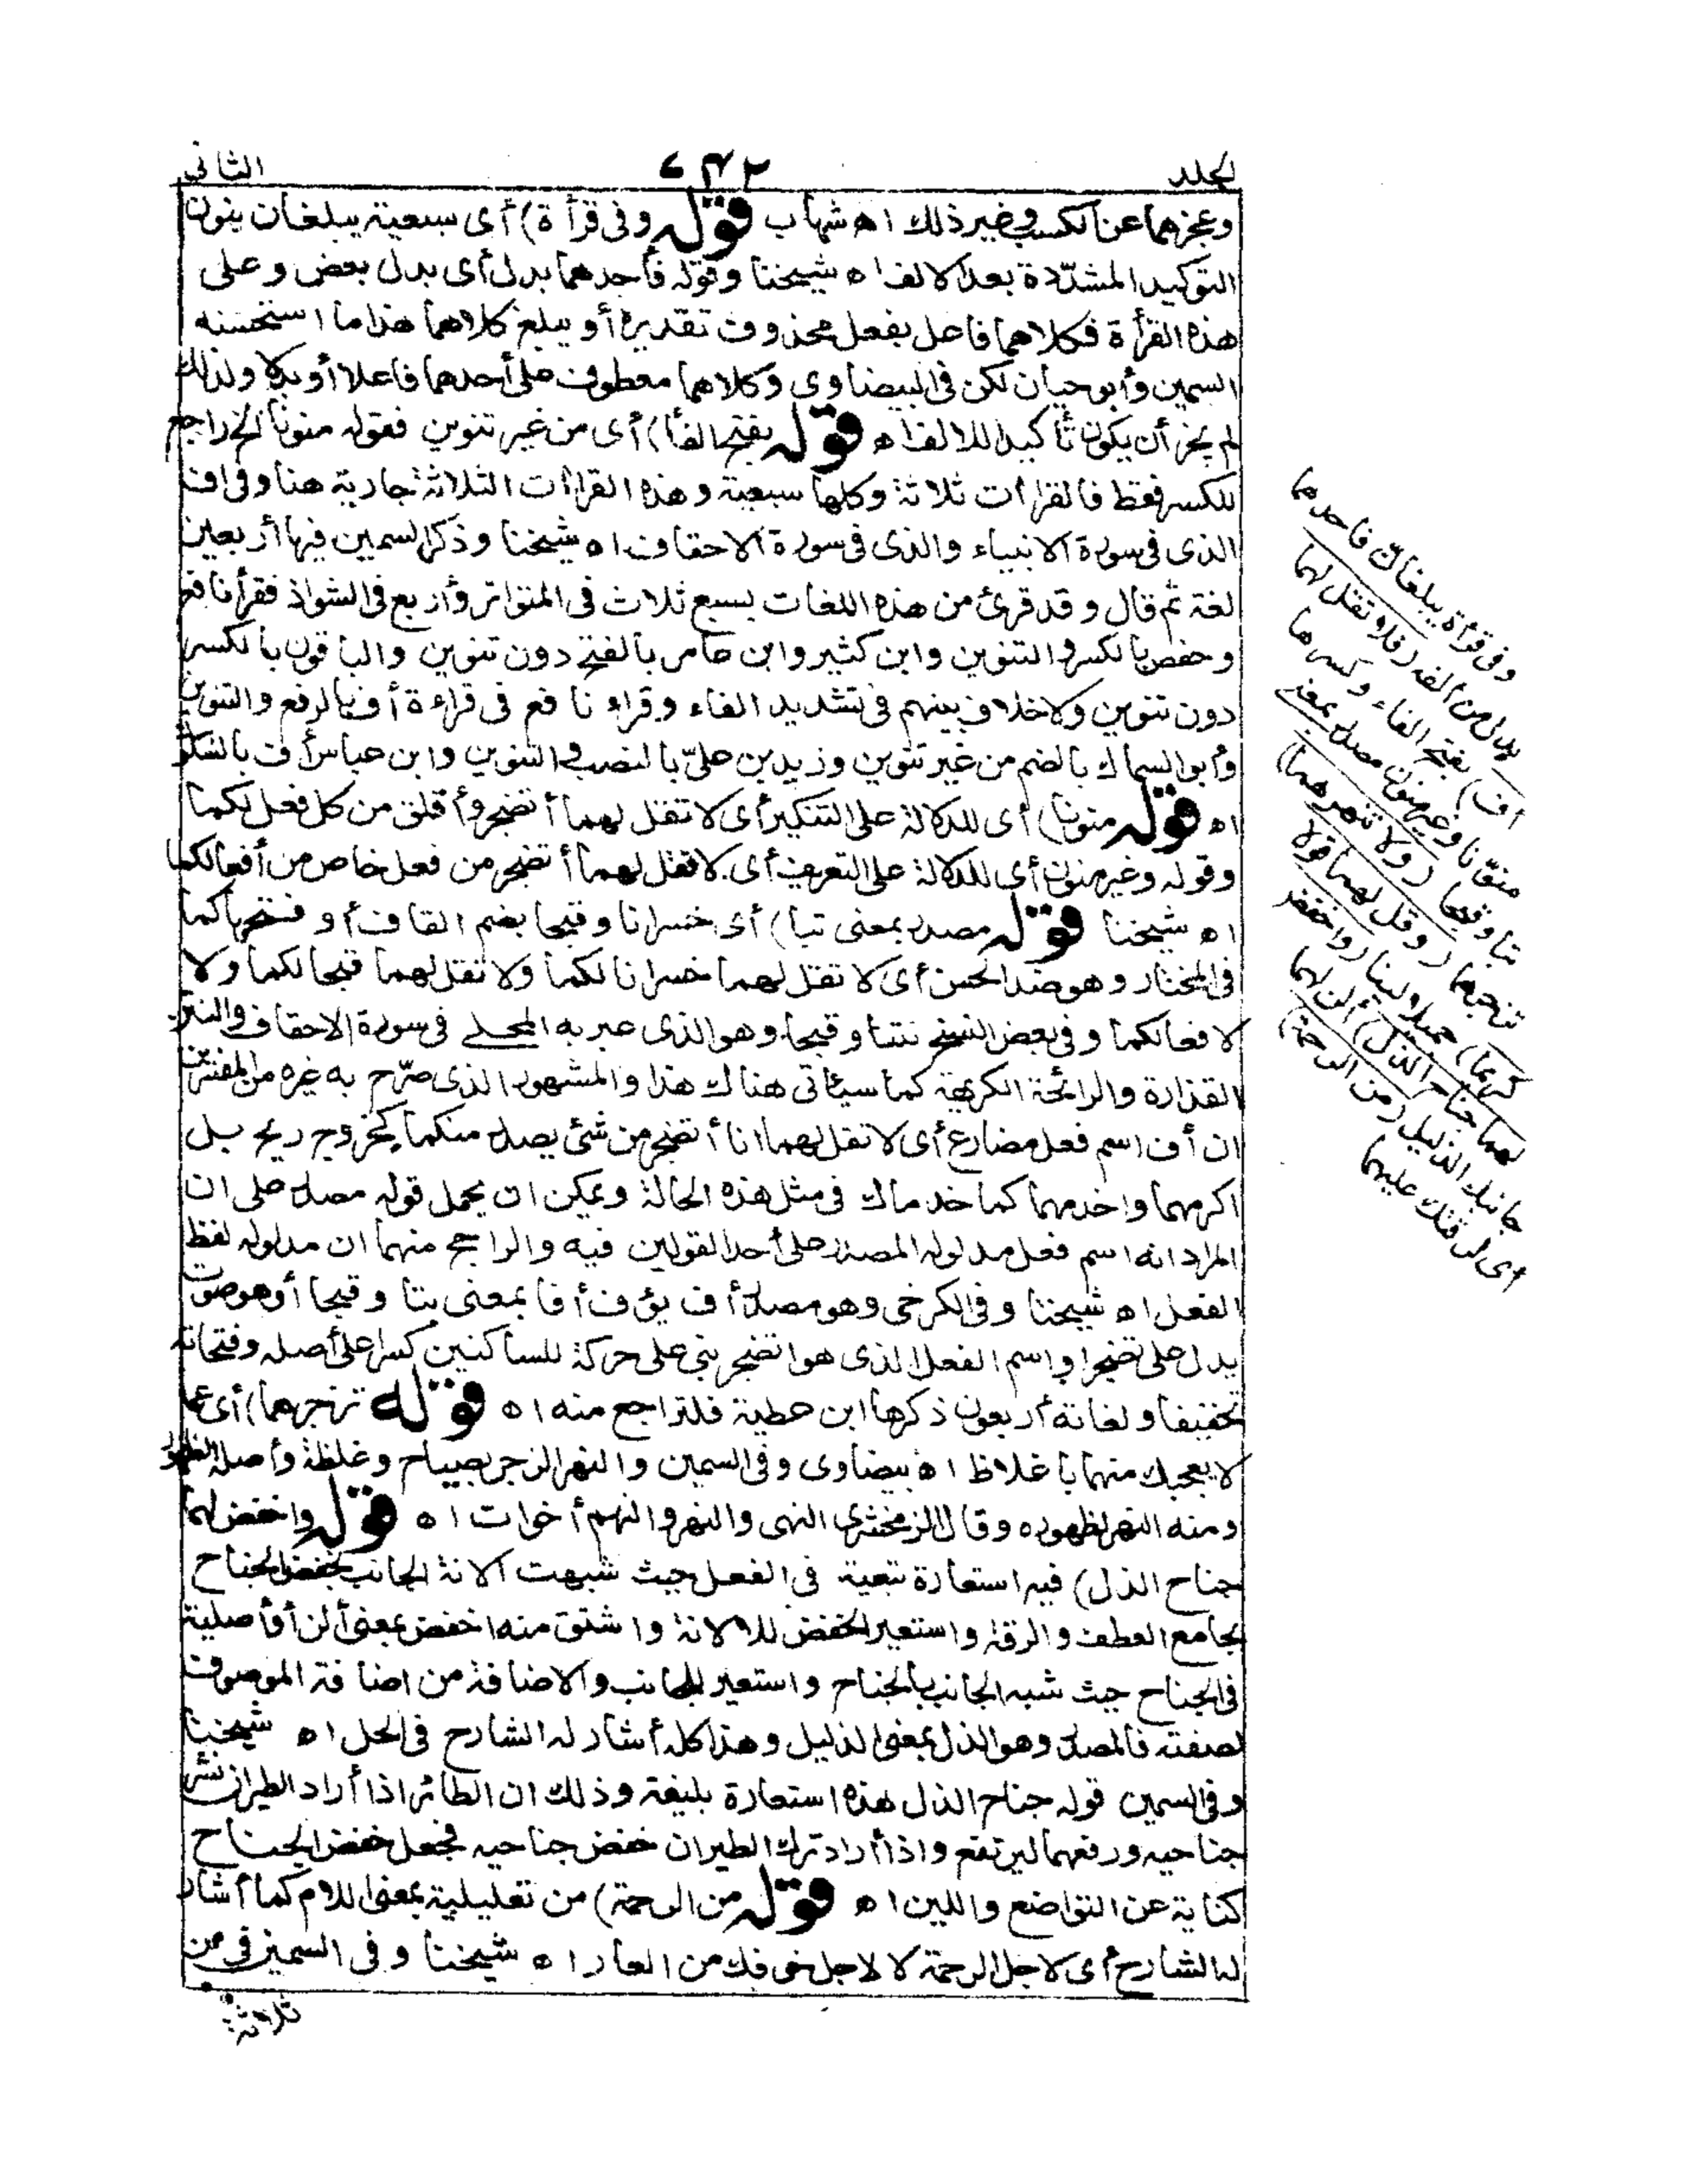 الجلد
٦٣٢
الثانی
وعجزهما عن الكسب وغير ذلك اه شهاب قوله وفى قرأة) أى سبعية يبلغان بنون
التوكيد المشدّدة بعد الالف اه شيخنا وقوله فأحدهما بدل أى بدل بعض وعلى
هذه القرأة فكلاهما فاعل بفعل محذوف تقديره أو يبلغ كلاهما هذا ما استحسنه
السمين وأبو حيان لكن فى البيضاوى وكلاهما معطوف على أحدهما فاعلا أو بدلا ولذلك
لم يجز أن يكون تأكيدا للالف اه قوله بفتح الفا) أى من غير تنوين فقوله منونا الخ راجع
للكسر فقط فالقرا‌آت ثلاثة وكلها سبعية وهذه القراآت الثلاثة جارية هنا وفى اف
الذى فى سورة الانبياء والذى فى سورة الاحقاف اه شيخنا وذكر السمين فيها أربعين
لغة ثم قال وقد قرئ من هذه اللغات بسبع ثلاث فى المتواتر وأربع فى الشواذ فقرأ نافع
وحفص بالكسر والتنوين وابن كثير وابن عامر بالفتح دون تنوين والباقون بالكسر
دون تنوين ولاخلاف بينهم فى تشديد الفاء وقراء نافع فى قراءة أف بالرفع والتنوين
وأبو السماك بالضم من غير تنوين وزيد بن علىّ بالنصب والتنوين وابن عباس أف بالسكون
اه قوله منونا) أى للدلالة على التنكير أى لا تقل لهما أتضجر وأقلق من كل فعل لكما
وقوله وغير منون أى للدلالة على التعريف أى لا تقل لهما أتضجر من فعل خاص من أفعالكما
اه شيخنا قوله مصدر بمعنى تبا) أى خسرانا وقبحا بضم القاف أو فتحها كما
فى المختار وهو ضد الحسن أى لا تقل لهما خسرانا لكما ولا تقل لهما قبحا لكما ولا
لافعالكما وفى بعض النسخ نتنا وقبحا وهو الذى عبر به المحلے فى سورة الاحقاف والنتن
القذارة والرائحة الكريهة كما سيئاتى هناك هذا والمشهور الذى صرّح به غيره من المفسرين
ان أف اسم فعل مضارع أى لا تقل لهما انا أتضجر من شئ يصدر منكما كخروج ريح بل
اكرمهما واخدمهما كما خدماك فى مثل هذه الحالة ويمكن ان يحمل قوله مصدر على ان
المراد انه اسم فعل مدلوله المصدر على أحد القولين فيه والراجح منهما ان مدلوله لفظ
الفعل اه شيخنا وفى الكرخى وهو مصدر أف يؤف أفا بمعنى تبا وقبحا أو هو صوت
يدل على تضجر او اسم الفعل الذى هو اتضجر بنى على حركة للساكنين كسرا على أصله وفتحا
تخفيفا ولغاته أربعون ذكرها ابن عطية فلتراجع منه اه قوله تزجرهما) أى عما
لا يعجبك منهما باغلاظ اه بيضاوى وفى السمين والنهر الزجر بصياح وغلظة وأصله الظهور
ومنه النهر لظهوره وقال الزمخشرى النهى والنهر والنهم أخوات اه قوله واخفض لهما
جناح الذل) فيه استعارة تبعية فى الفعل حيث شبهت الانة الجانب بخفض الجناح
بجامع العطف والرقة واستعير الخفض للالانة واشتق منه اخفض بمعنى ألن أو أصلية
فى الجناح حيث شبه الجانب بالجناح واستعير للجانب والاضافة من اضافة الموصوف
لصفته فالمصدر وهو الذل بمعنى الذليل وهذا كله أشار له الشارح فى الحل اه شيخنا
وفى السمين قوله جناح الذل هذه استعارة بليغة وذلك ان الطائر اذا أراد الطيران نشر
جناحيه ورفعهما ليرتفع واذا أراد ترك الطيران خفض جناحيه فجعل خفض الجناح
كناية عن التواضع واللين اه قوله من الرحمة) من تعليلية بمعنى اللام كما أشار
له الشارح أى لاجل الرحمة لا لاجل خوفك من العار اه شيخنا وفى السمين فى من
ثلاثة
وفى قرأة يبلغانّ فاحدهما
بدل من ألفه (فلا تقل لهما
أف) بفتح الفاء وكسرها
منوّنا وغير منون مصدر بمعنى
تبا وقبحا (ولا تنهرهما)
تزجرهما (وقل لهما قولا
كريما) جميلا لينا (واخفض
لهما جناح الذل) ألن لهما
جانبك الذليل (من الرحمة)
أى لرقتك عليهما